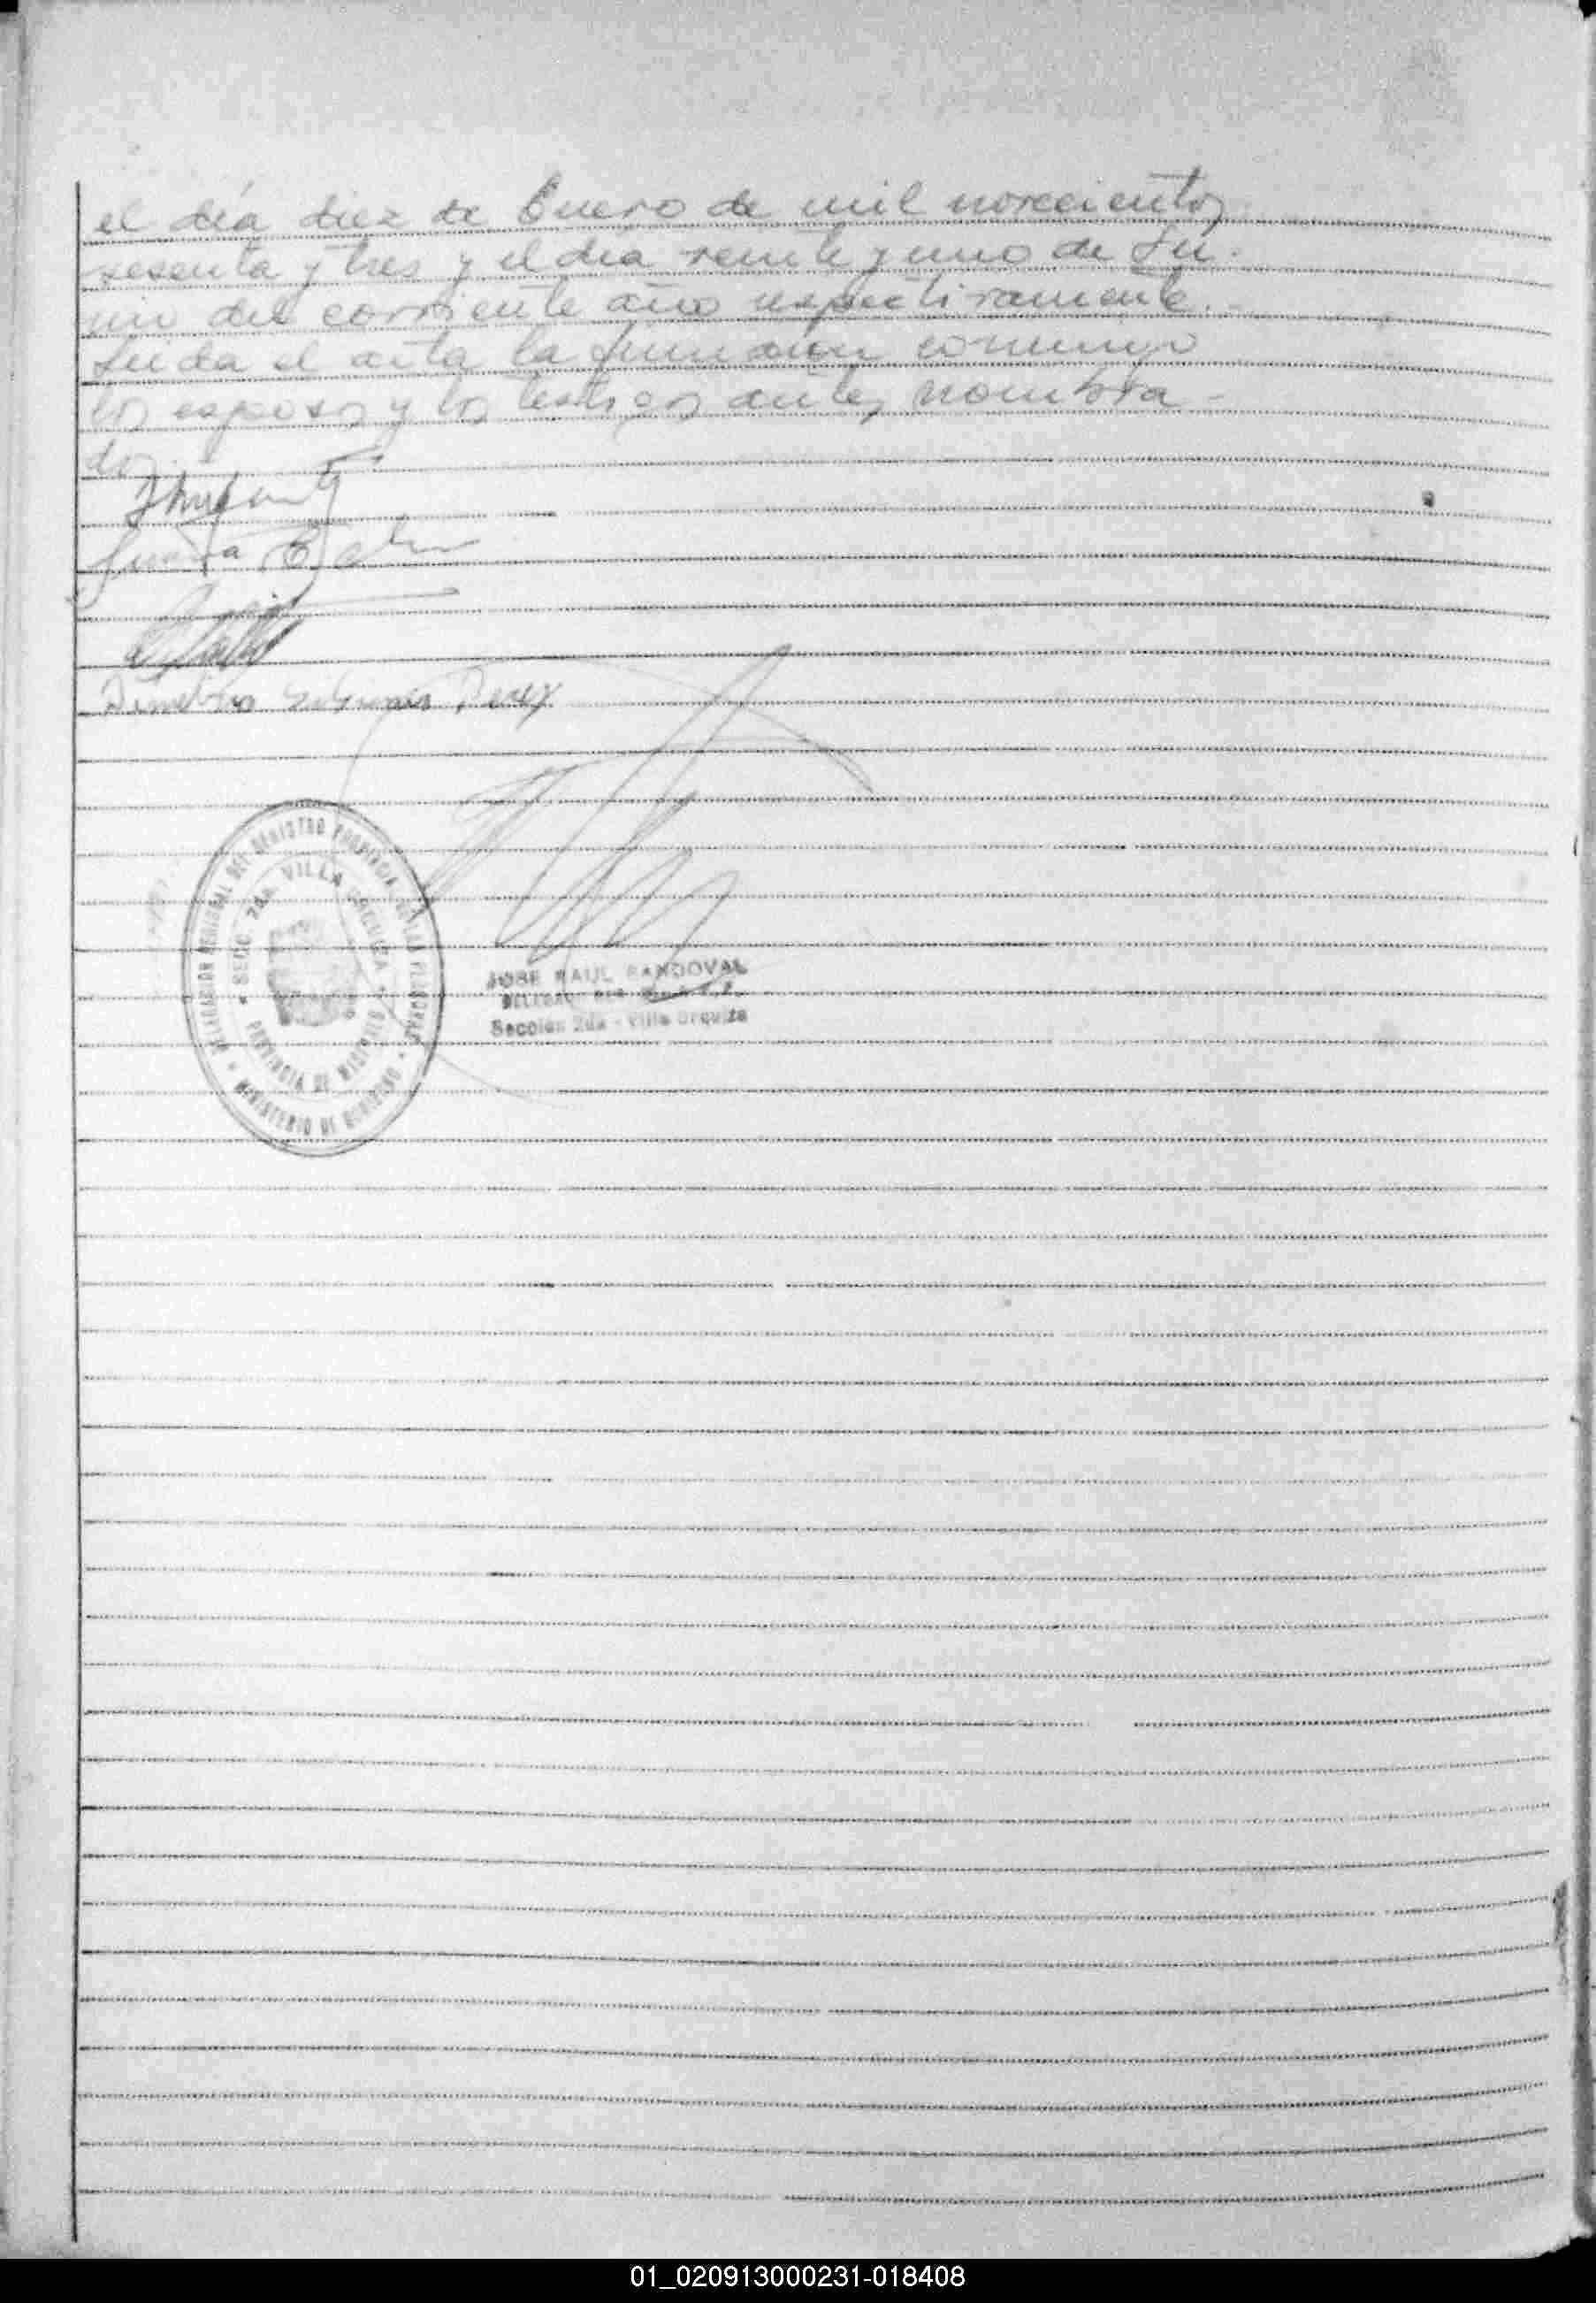 el día diez de Enero de mil novecientos
sesenta y tres y el día veinte y uno de Ju-
nio del corriente año respectivamente.
Leida el acta la firman conmigo
los esposos y los testigos antes nombra-
dos.
Perez
DELEGACION REGIONAL DEL REGISTRO PROVINCIAL DE LAS PERSONAS
SECC. 2da. VILLA URQUIZA
PROVINCIA DE MISIONES
MINISTERIO DE GOBIERNO
JOSE RAUL SANDOVAL
Sección 2da - Villa Urquiza
01_020913000231-018408